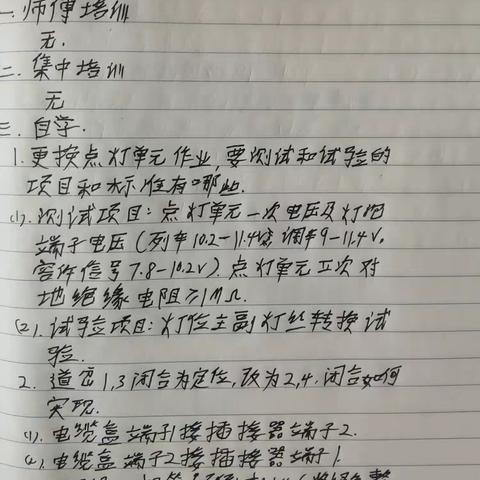 一.师傅培训
无.
二.集中培训
无
三.自学.
1.更换点灯单元作业,要测试和试验的
项目和标准有哪些.
(1).测试项目:点灯单元一次电压及灯泡
端子电压(列车10.2-11.4V 调车9-11.4V.
容许信号7.8-10.2V).点灯单元Ⅱ次对
地绝缘电阻≥1MΩ.
(2).试验项目:灯位主副灯丝转换试
验.
2.道岔1,3闭合为定位,改为2,4.闭合如何
实现.
(1).电缆盒端子1接插接器端子2.
(2).电缆盒端子2接插接器端子1.